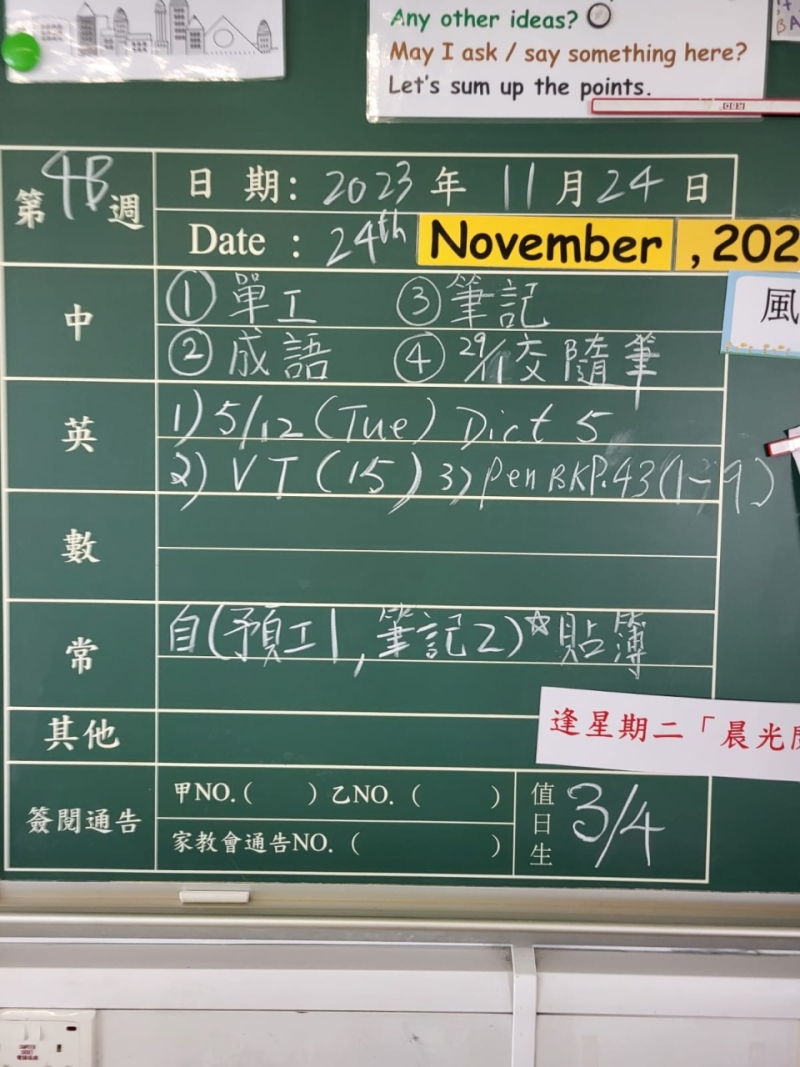 Any other ideas?
May I ask / say something here?
Let's sum up the points.
第4B週
日 期: 2023 年 11 月 24 日
Date : 24th November , 202
中
① 單工 ③ 筆記
② 成語 ④ 29/11交隨筆
風
英
1) 5/12 (Tue) Dict 5
2) VT (15) 3) Pen BK P.43 (1-9)
數
常
自(預工1, 筆記2)☆貼簿
其他
逢星期二「晨光
簽閱通告
甲NO.( ) 乙NO. ( )
家教會通告NO. ( )
值日生 3/4